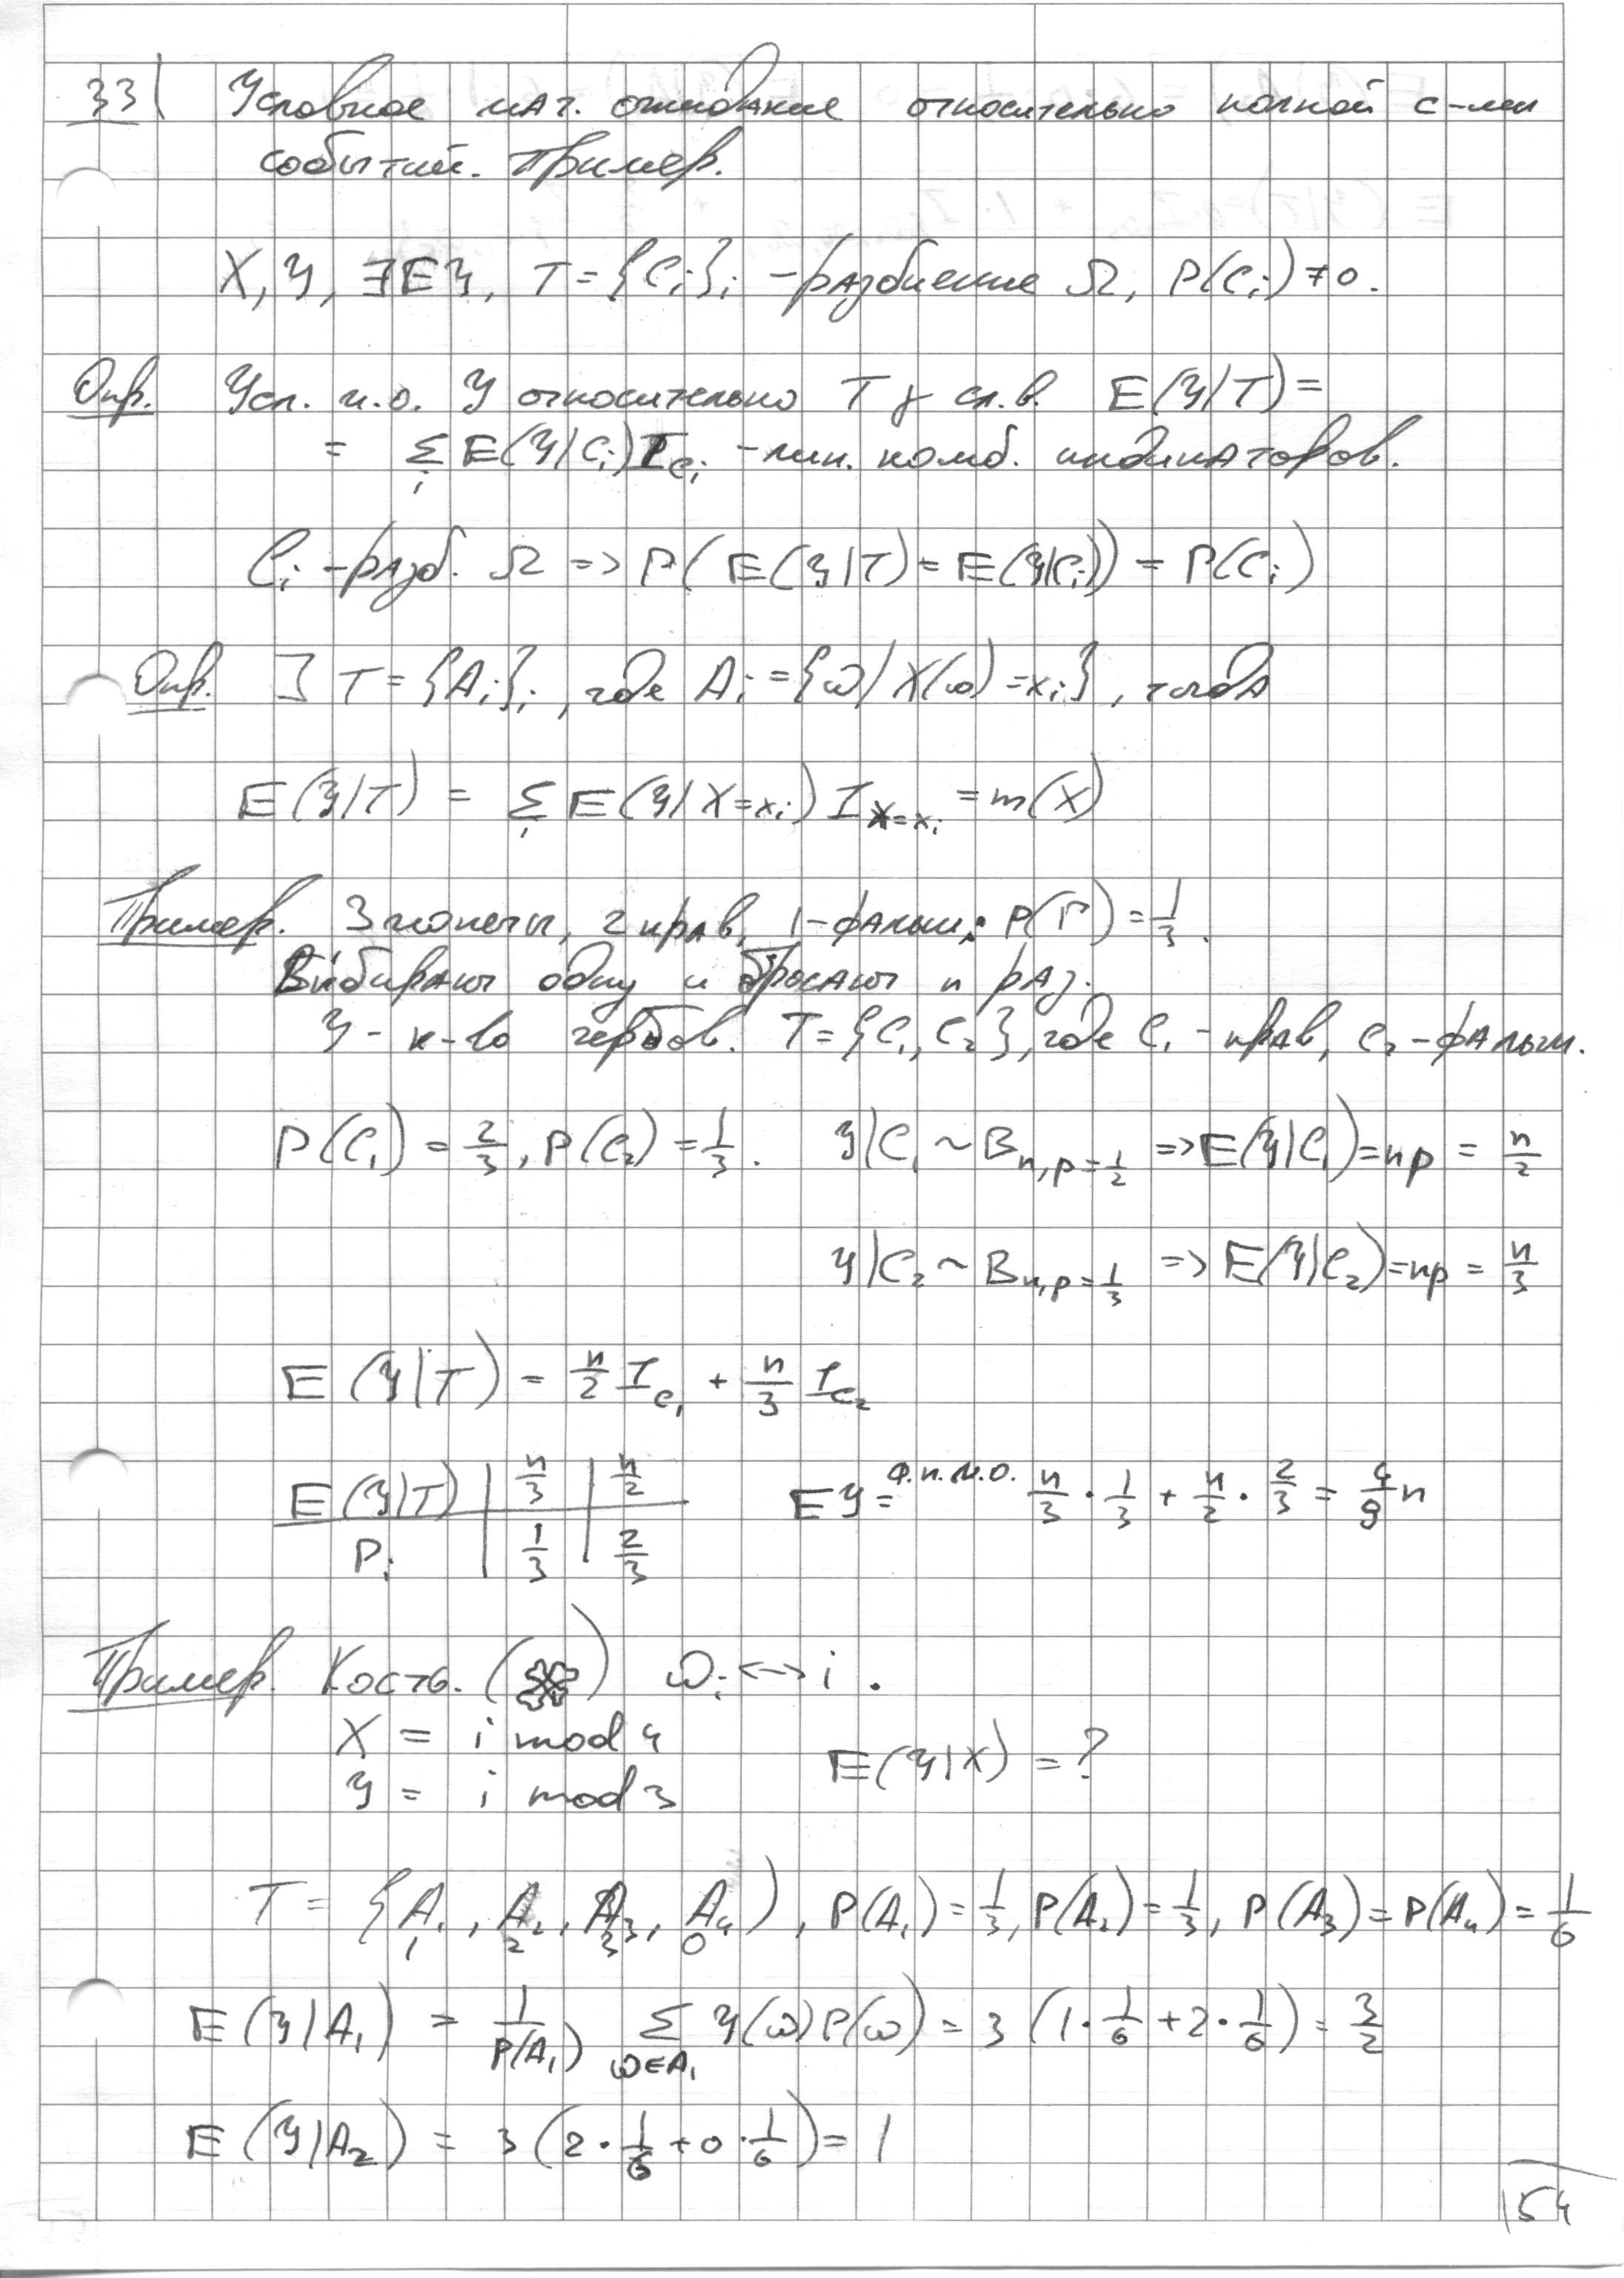 33) Условное мат. ожидание относительно полной с-мы
событий. Пример.
X, Y, ∃EY, T = {C_i}_i - разбиение Ω, P(C_i) ≠ 0.
Опр. Усл. м.о. Y относительно T ... сл.в. E(Y|T) =
= Σ_i E(Y|C_i) I_{C_i} - лин. комб. индикаторов.
C_i - разб. Ω => P(E(Y|T) = E(Y|C_i)) = P(C_i)
Опр. ] T = {A_i}_i, где A_i = {ω| X(ω) = x_i}, тогда
E(Y|T) = Σ_i E(Y|X=x_i) I_{X=x_i} = m(X)
Пример. 3 монеты, 2 прав, 1 - фальш: P(Г) = 1/3.
Выбирают одну и бросают n раз.
Y - к-во гербов. T = {C_1, C_2}, где C_1 - прав, C_2 - фальш.
P(C_1) = 2/3, P(C_2) = 1/3. Y|C_1 ~ B_{n,p=1/2} => E(Y|C_1) = np = n/2
Y|C_2 ~ B_{n,p=1/3} => E(Y|C_2) = np = n/3
E(Y|T) = n/2 I_{C_1} + n/3 I_{C_2}
E(Y|T) | n/3 | n/2
P_i | 1/3 | 2/3
EY = ф.п.м.о. n/3 · 1/3 + n/2 · 2/3 = 4/9 n
Пример. Кость. ( ) ω_i <-> i.
X = i mod 4
Y = i mod 3
E(Y|X) = ?
T = {A_1, A_2, A_3, A_4), P(A_1) = 1/3, P(A_2) = 1/3, P(A_3) = P(A_4) = 1/6
1 2 3 0
E(Y|A_1) = 1/P(A_1) Σ_{ω∈A_1} Y(ω)P(ω) = 3 (1 · 1/6 + 2 · 1/6) = 3/2
E(Y|A_2) = 3 (2 · 1/6 + 0 · 1/6) = 1
54